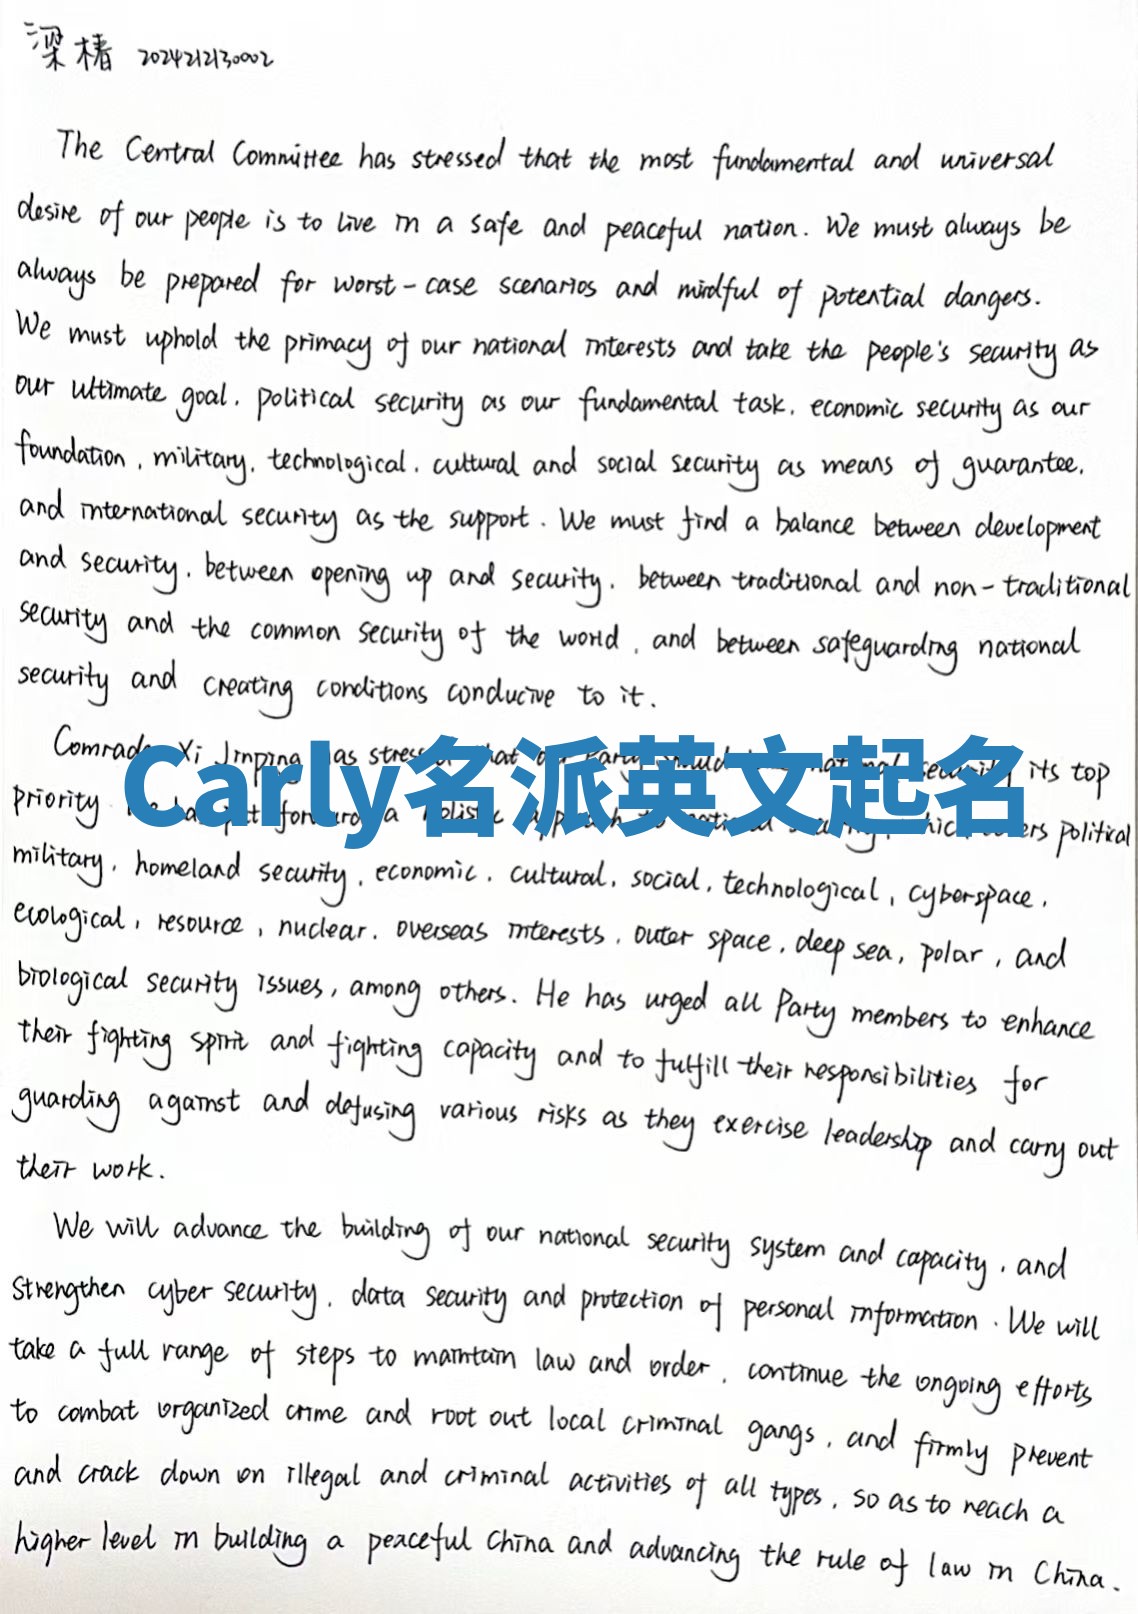 梁椿 2024212130002
The Central Committee has stressed that the most fundamental and universal
desire of our people is to live in a safe and peaceful nation. We must always be
always be prepared for worst-case scenarios and mindful of potential dangers.
We must uphold the primacy of our national interests and take the people's security as
our ultimate goal, political security as our fundamental task, economic security as our
foundation, military, technological, cultural and social security as means of guarantee,
and international security as the support. We must find a balance between development
and security, between opening up and security, between traditional and non-traditional
security and the common security of the world, and between safeguarding national
security and creating conditions conducive to it.
Comrade Xi Jinping has stressed that our Party should national security its top
Carly名派英文起名
priority put forward a holistic approach to national security, which covers political
military, homeland security, economic, cultural, social, technological, cyberspace,
ecological, resource, nuclear, overseas interests, outer space, deep sea, polar, and
biological security issues, among others. He has urged all Party members to enhance
their fighting spirit and fighting capacity and to fulfill their responsibilities for
guarding against and defusing various risks as they exercise leadership and carry out
their work.
We will advance the building of our national security system and capacity, and
strengthen cyber security, data security and protection of personal information. We will
take a full range of steps to maintain law and order, continue the ongoing efforts
to combat organized crime and root out local criminal gangs, and firmly prevent
and crack down on illegal and criminal activities of all types, so as to reach a
higher level in building a peaceful China and advancing the rule of law in China.